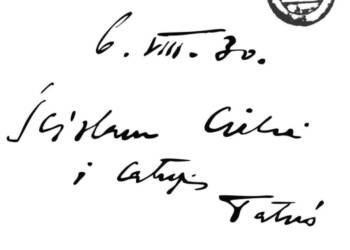 6. VIII. 30.
Ściskam Ciebie
i całuję
Tatuś